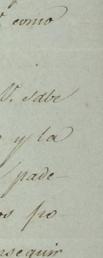 como
V. sabe
y la
pade-
os po
nseguir